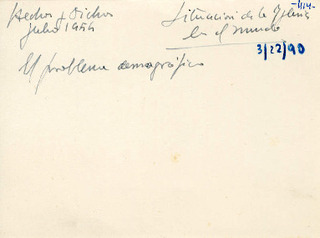 Hechos y Dichos
Julio 1954
Situación de la Iglesia
en el mundo
-114-
3/22/90
El problema demográfico